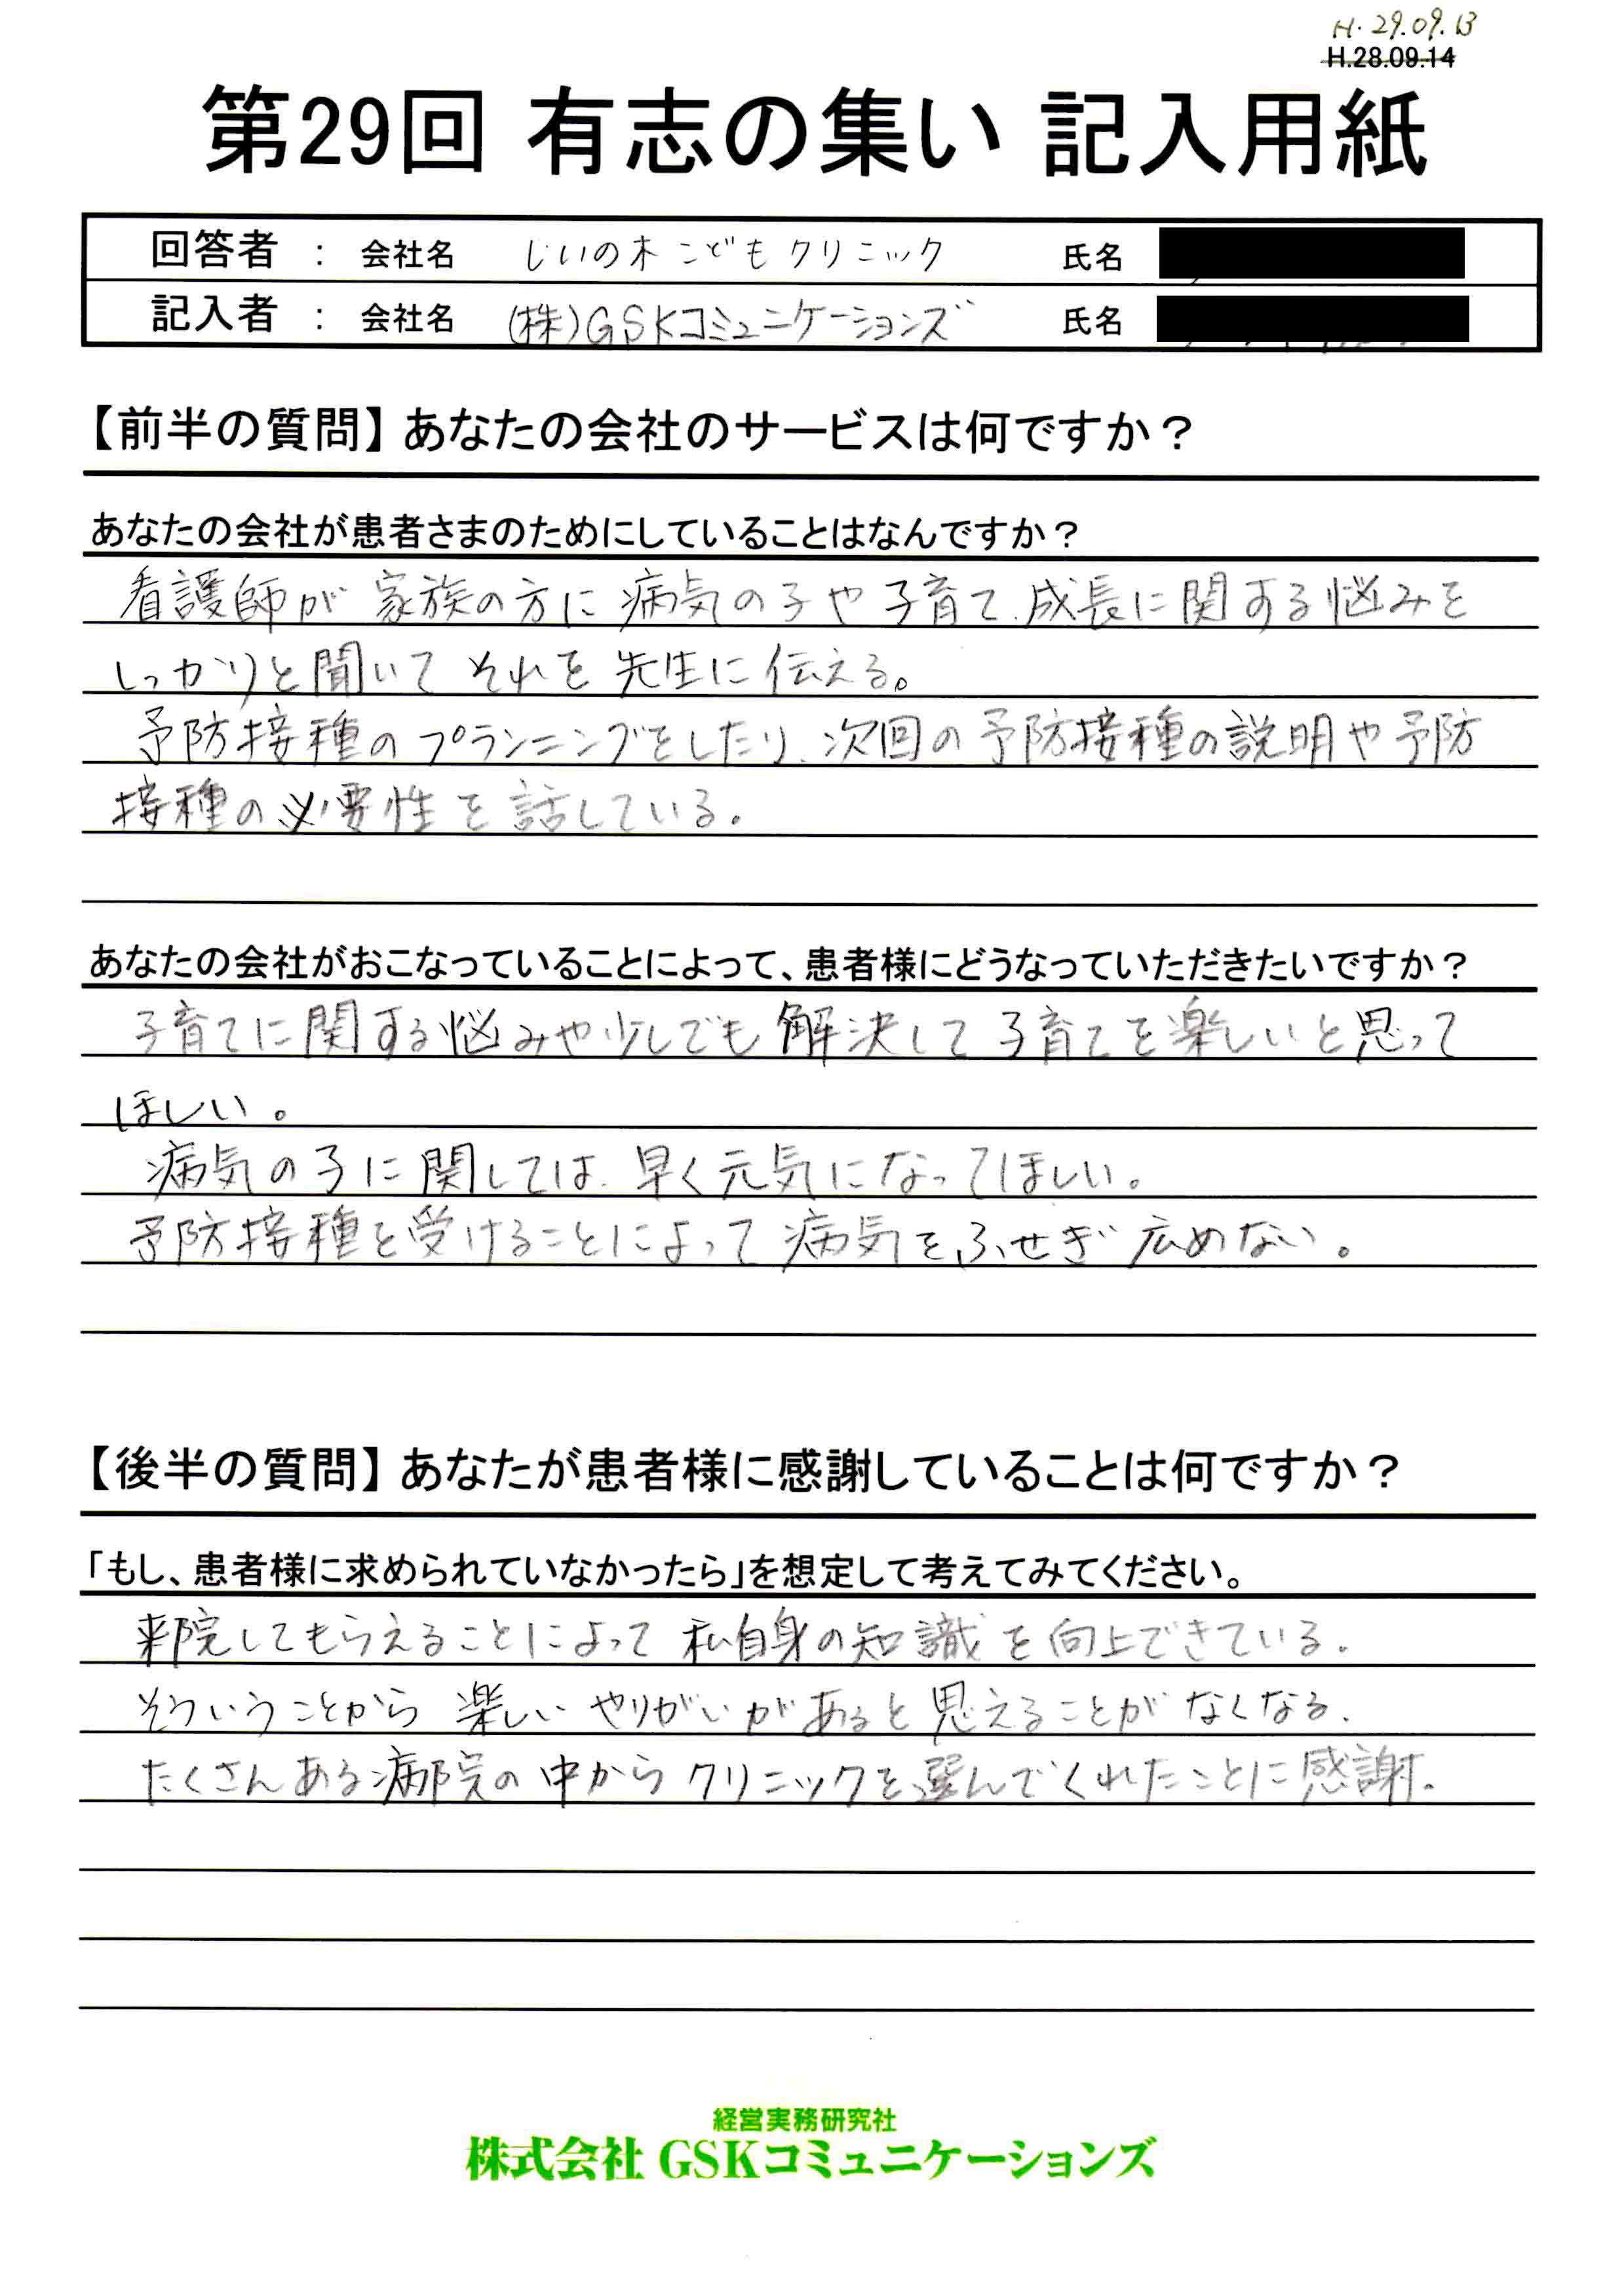 H.29.09.13
H.28.09.14
第29回 有志の集い 記入用紙
回答者 : 会社名 じいの木 こどもクリニック 氏名
記入者 : 会社名 (株)GSKコミュニケーションズ 氏名
【前半の質問】あなたの会社のサービスは何ですか？
あなたの会社が患者さまのためにしていることはなんですか？
看護師が 家族の方に 病気の子や子育て、成長に関する悩みを
しっかりと聞いて それを 先生に伝える。
予防接種のプランニングをしたり、次回の予防接種の説明や予防
接種の必要性を話している。
あなたの会社がおこなっていることによって、患者様にどうなっていただきたいですか？
子育てに関する悩みや少しでも解決して子育てを楽しいと思って
ほしい。
病気の子に関しては、早く元気になってほしい。
予防接種を受けることによって病気をふせぎ広めない。
【後半の質問】あなたが患者様に感謝していることは何ですか？
「もし、患者様に求められていなかったら」を想定して考えてみてください。
来院してもらえることによって 私自身の知識を向上できている。
そういうことから 楽しい やりがいがあると思えることがなくなる。
たくさんある病院の中からクリニックを選んでくれたことに感謝。
経営実務研究社
株式会社 GSKコミュニケーションズ